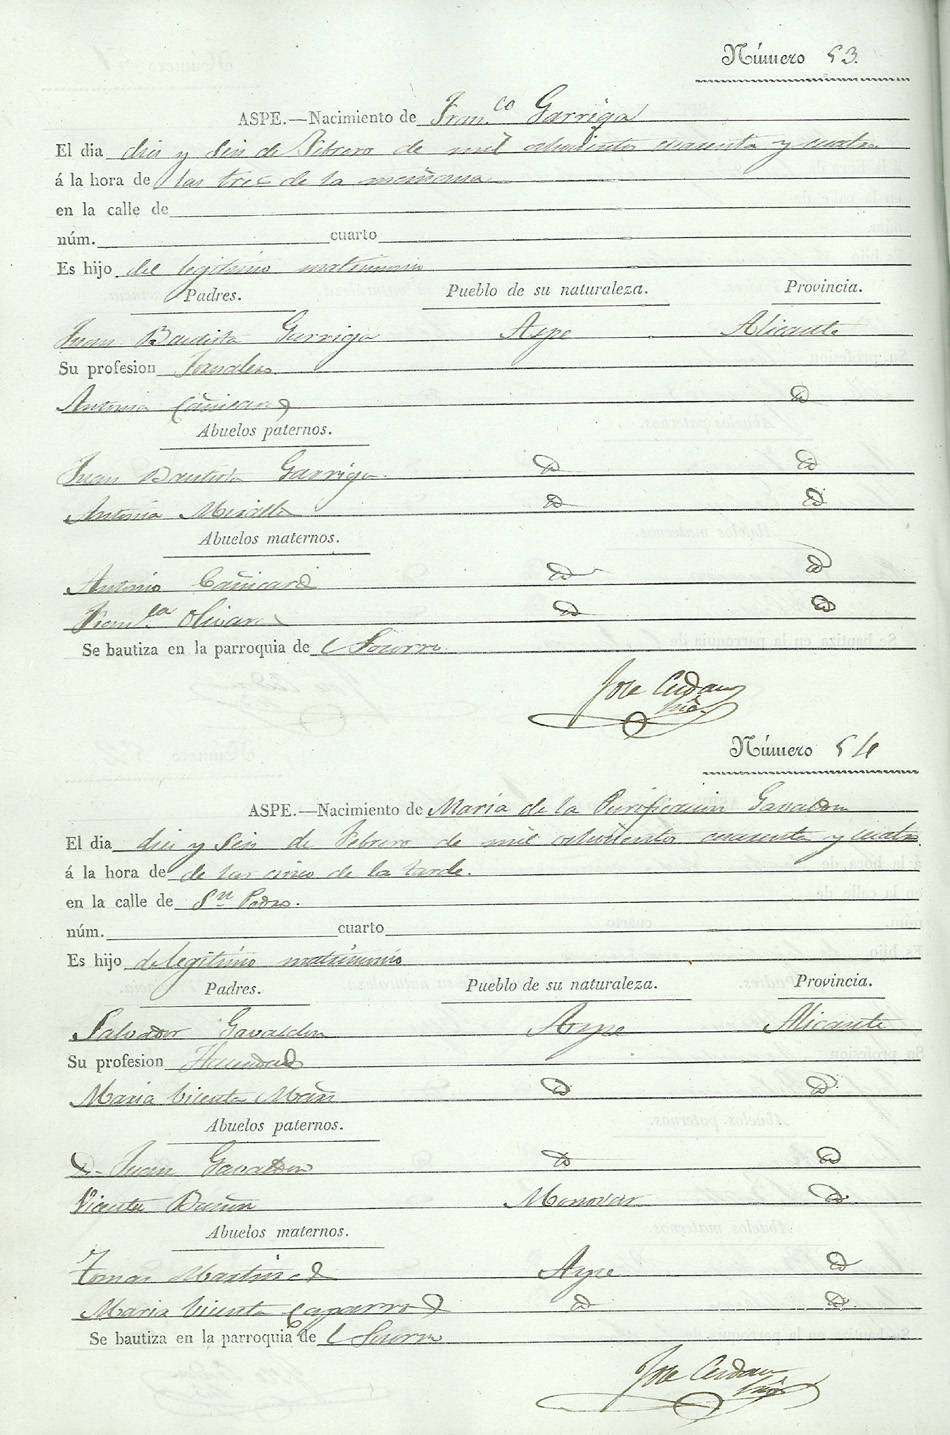 Número 53.
ASPE.—Nacimiento de Fran.co Garriga
El dia diez y seis de Febrero de mil ochocientos cuarenta y cuatro
á la hora de las tres de la mañana
en la calle de
núm. cuarto
Es hijo de legitimo matrimonio
Padres. Pueblo de su naturaleza. Provincia.
Juan Bautista Garriga Aspe Alicante
Su profesion Jornalero
Antonia Cañizares id
Abuelos paternos.
Juan Bautista Garriga id id
Antonia Miralles id id
Abuelos maternos.
Antonio Cañizares id id
Fran.ca Olivares id id
Se bautiza en la parroquia del Socorro
Jose Cerdan
Número 54
ASPE.—Nacimiento de Maria de la Purificacion Gavaldon
El dia diez y seis de Febrero de mil ochocientos cuarenta y cuatro
á la hora de de las cinco de la tarde.
en la calle de Sn Pedro.
núm. cuarto
Es hijo de legitimo matrimonio
Padres. Pueblo de su naturaleza. Provincia.
Salvador Gavaldon Aspe Alicante
Su profesion Hacendado
Maria Vicenta id id
Abuelos paternos.
Juan Gavaldon id id
Vicenta Monovar id
Abuelos maternos.
Tomas Martinez Aspe id
Maria Vicenta Caparros id id
Se bautiza en la parroquia de l Socorro
Jose Cerdan